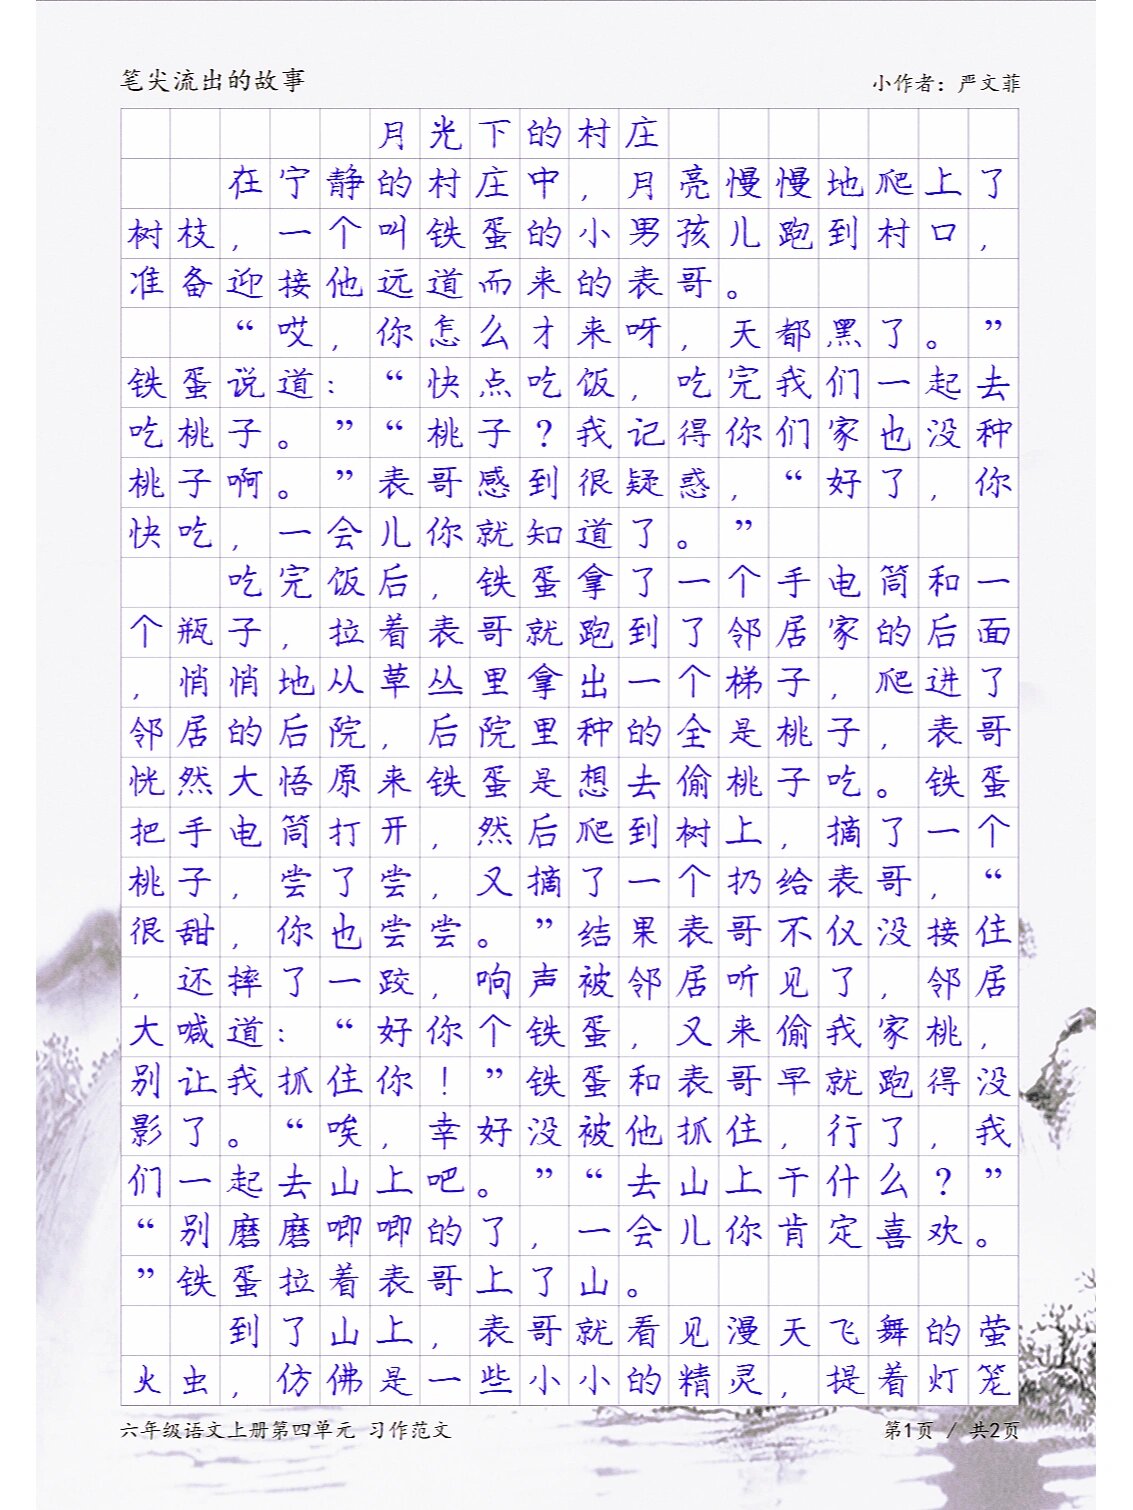 笔尖流出的故事
小作者：严文菲
月光下的村庄
在宁静的村庄中，月亮慢慢地爬上了
树枝，一个叫铁蛋的小男孩儿跑到村口，
准备迎接他远道而来的表哥。
“哎，你怎么才来呀，天都黑了。”
铁蛋说道：“快点吃饭，吃完我们一起去
吃桃子。”“桃子？我记得你们家也没种
桃子啊。”表哥感到很疑惑，“好了，你
快吃，一会儿你就知道了。”
吃完饭后，铁蛋拿了一个手电筒和一
个瓶子，拉着表哥就跑到了邻居家的后面
，悄悄地从草丛里拿出一个梯子，爬进了
邻居的后院，后院里种的全是桃子，表哥
恍然大悟原来铁蛋是想去偷桃子吃。铁蛋
把手电筒打开，然后爬到树上，摘了一个
桃子，尝了尝，又摘了一个扔给表哥，“
很甜，你也尝尝。”结果表哥不仅没接住
，还摔了一跤，响声被邻居听见了，邻居
大喊道：“好你个铁蛋，又来偷我家桃，
别让我抓住你！”铁蛋和表哥早就跑得没
影了。“唉，幸好没被他抓住，行了，我
们一起去山上吧。”“去山上干什么？”
“别磨磨唧唧的了，一会儿你肯定喜欢。
”铁蛋拉着表哥上了山。
到了山上，表哥就看见漫天飞舞的萤
火虫，仿佛是一些小小的精灵，提着灯笼
六年级语文上册第四单元 习作范文
第1页 / 共2页